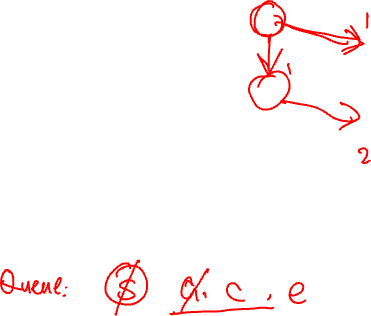 1
1
2
Queue: $ a, c, e